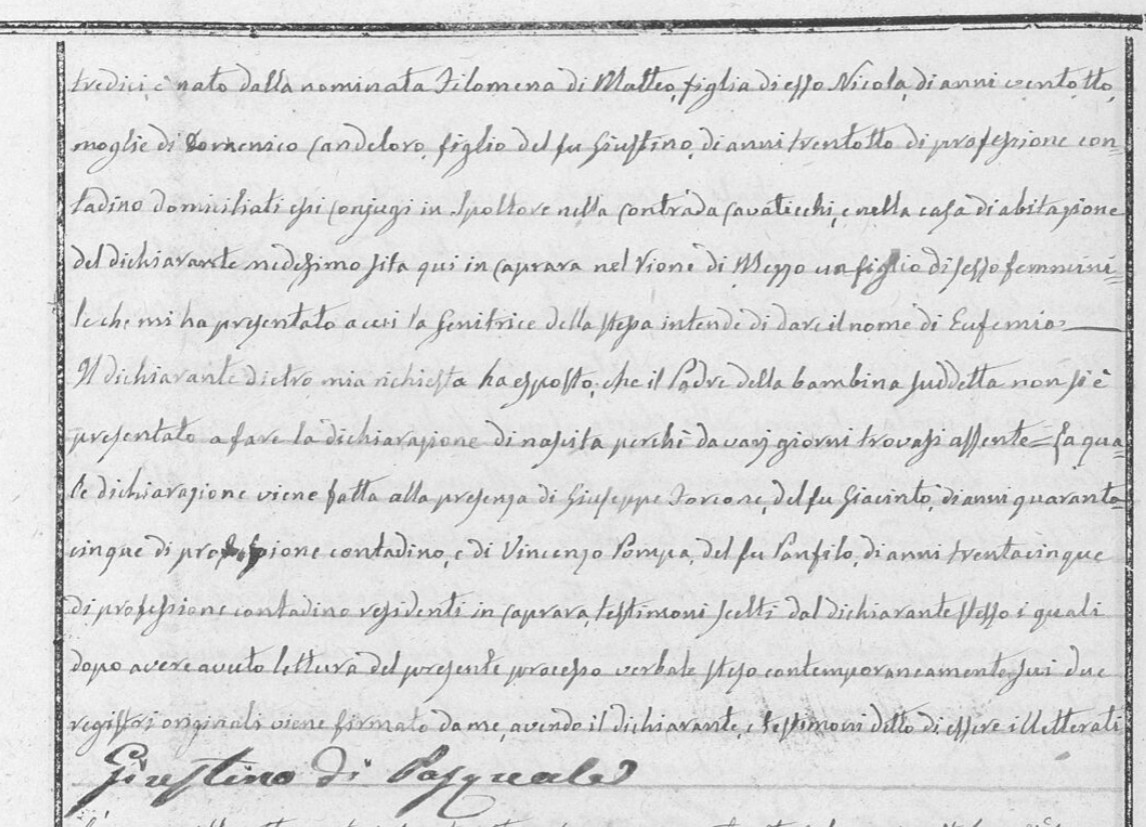 tredici, è nato dalla nominata Filomena di Matteo, figlia di esso Nicola, di anni ventotto,
moglie di Domenico Candeloro, figlio del fu Giustino, di anni trentotto di professione con=
tadino domiciliati essi conjugi in Spoltore nella contrada Cavaticchi, e nella casa di abitazione
del dichiarante medesimo sita qui in Caprara nel Rione di Mezzo un figlio di sesso femmini=
le che mi ha presentato a cui la genitrice della stessa intende di dare il nome di Eufemia
Il dichiarante dietro mia richiesta ha esposto, che il Padre della bambina suddetta non si è
presentato a fare la dichiarazione di nascita perchè da varj giorni trovasi assente = La qua=
le dichiarazione viene fatta alla presenza di Giuseppe Forcone, del fu Giacinto, di anni quaranta=
cinque di professione contadino, e di Vincenzo Pompa, del fu Panfilo, di anni trentacinque
di professione contadino residenti in Caprara, testimoni scelti dal dichiarante stesso i quali
dopo avere avuto lettura del presente processo verbale steso contemporaneamente sui due
registri originali viene firmato da me, avendo il dichiarante, e testimoni detto di essere illetterati
Giustino di Pasquale